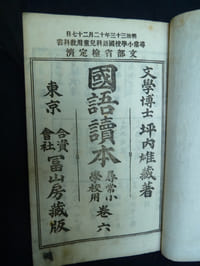 明治三十三年十二月二十七日
尋常小學校國語科兒童用敎科書
文部省檢定濟
文學博士 坪內雄藏著
國語讀本 尋常小學校用 卷六
東京 合資會社 冨山房藏版